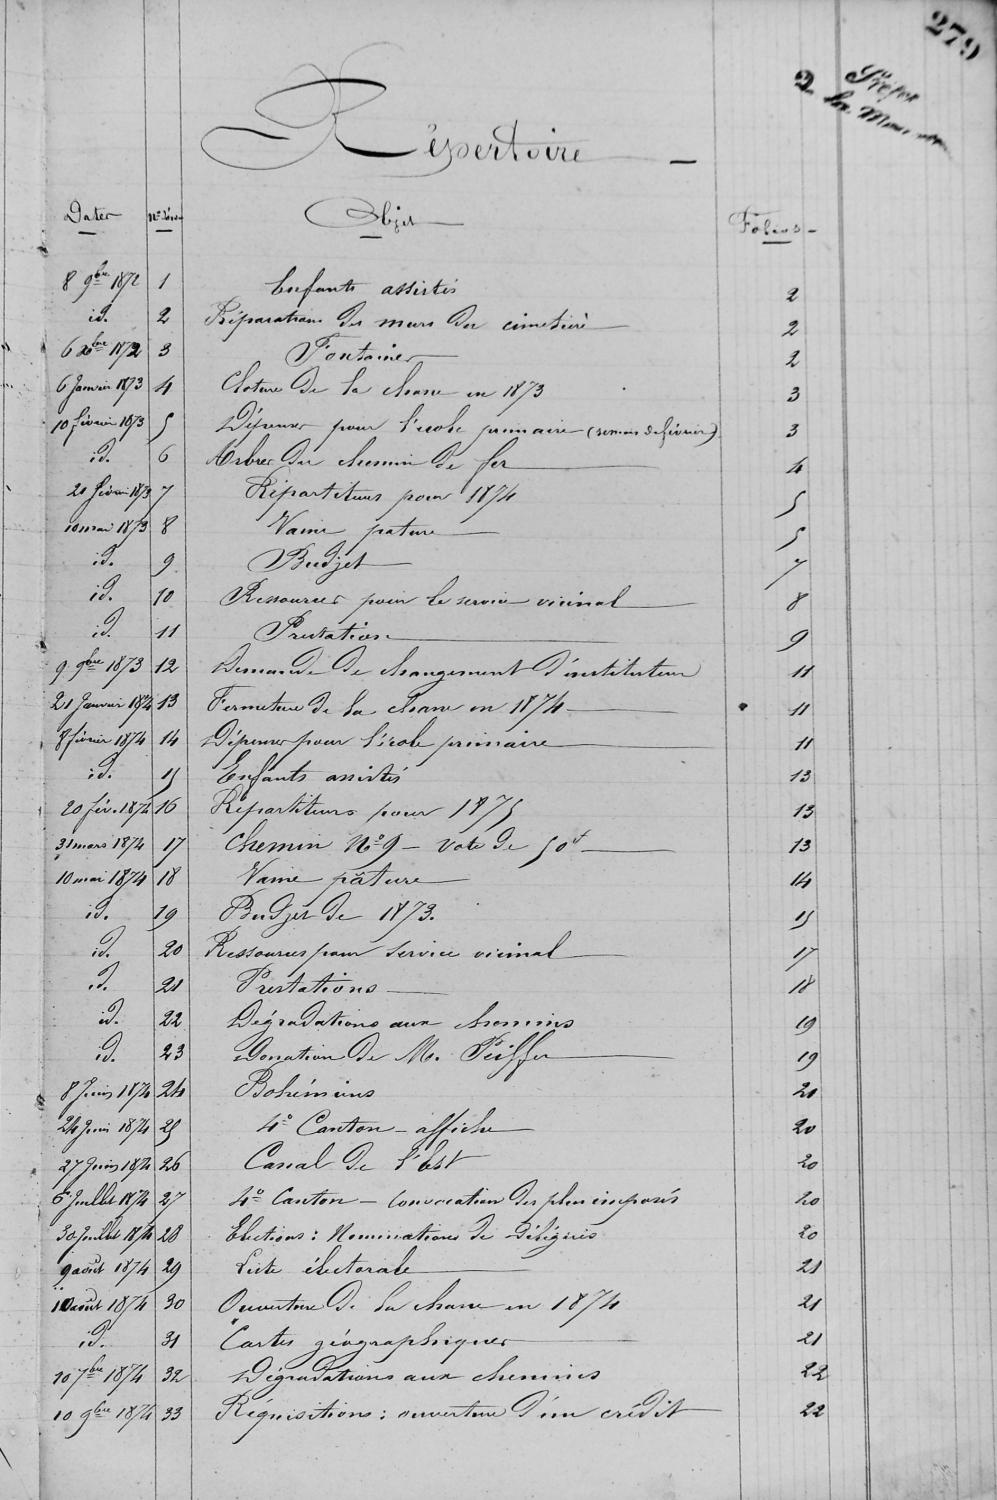 279
Répertoire
Dates Objet Folios
8 9bre 1872 1 Enfants assistés 2
id. 2 Réparations des murs du cimetière 2
6 Xbre 1872 3 Fontaines 2
6 Janvier 1873 4 Cloture de la chasse en 1873 3
10 février 1873 5 Dépenses pour l'école primaire 3
id. 6 Arbres du chemin de fer 4
20 février 1873 7 Répartiteurs pour 1874 5
10 mai 1873 8 Vaine pature 5
id. 9 Budget 7
id. 10 Ressources pour le service vicinal 8
id. 11 Prestations 9
9 9bre 1873 12 Demande de changement d'instituteur 11
21 Janvier 1874 13 Fermeture de la chasse en 1874 11
8 février 1874 14 Dépenses pour l'école primaire 11
id. 15 Enfants assistés 13
20 fév. 1874 16 Répartiteurs pour 1875 13
31 mars 1874 17 Chemin No 9 - Vote de 50f 13
10 mai 1874 18 Vaine pâture 14
id. 19 Budget de 1873. 15
id. 20 Ressources pour service vicinal 17
id. 21 Prestations 18
id. 22 Dégradations aux chemins 19
id. 23 Donation de M. Peiffer 19
8 Juin 1874 24 Bohémiens 20
24 Juin 1874 25 4o Canton - affiche 20
27 Juin 1874 26 Canal de l'Est 20
6 Juillet 1874 27 4o Canton - Convocation des plus imposés 20
30 Juillet 1874 28 Elections : Nominations de Délégués 20
9 août 1874 29 Liste électorale 21
10 août 1874 30 Ouverture de la chasse en 1874 21
id. 31 Cartes géographiques 21
10 7bre 1874 32 Dégradations aux chemins 22
10 9bre 1874 33 Réquisitions : ouverture d'un crédit 22